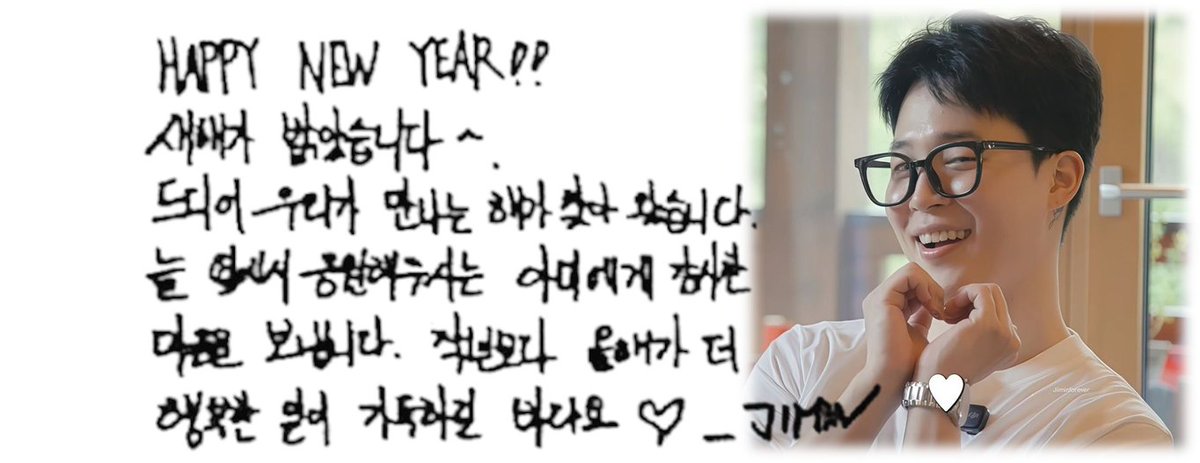 HAPPY NEW YEAR!!
새해가 밝았습니다~.
드디어 우리가 만나는 해가 찾아 왔습니다.
늘 옆에서 응원해주시는 아미에게 감사한
마음을 보냅니다. 작년보다 올해가 더
행복한 일이 가득하길 바라요 ♡ _ JIMIN
Jiminforever